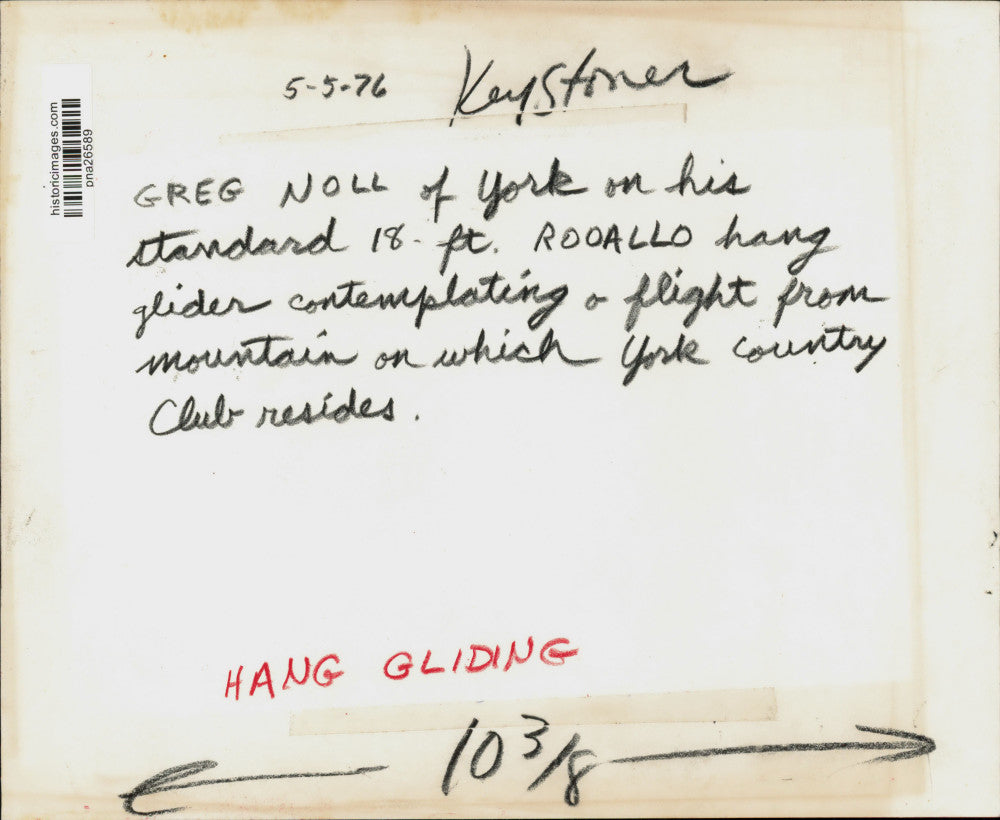 5-5-76 Keystoner
historicimages.com
pna26589
GREG NOLL of York on his
standard 18-ft. ROOALLO hang
glider contemplating a flight from
mountain on which York Country
Club resides.
HANG GLIDING
10 3/8